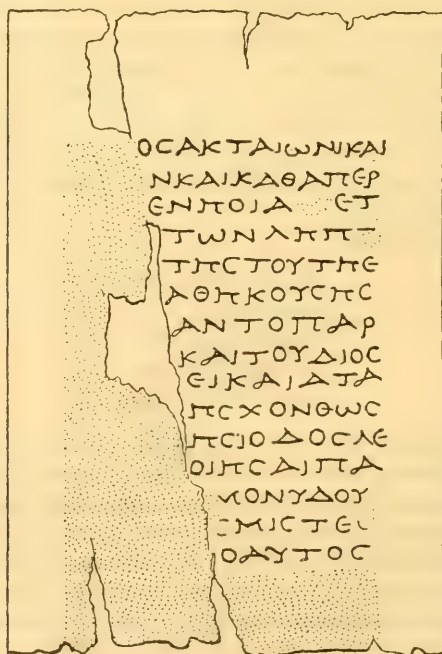 ΟϹΑΚΤΑΙΩΝΙΚΑΙ
ΝΚΑΙΚΑΘΑΠΕΡ
ΕΝΗΟΙΑ ΕΤ
ΤΩΝΛΗΠ
ΤΗϹΤΟΥΤΗΕ
ΑΘΗΚΟΥϹΗϹ
ΑΝΤΟΠΑΡ
ΚΑΙΤΟΥΔΙΟϹ
ΕΙΚΑΙΑΤΑ
ΗϹΧΟΝΘΩϹ
ΗϹΙΟΔΟϹΛΕ
ΟΙΗϹΑΙΠΑ
ΜΟΝΥΔΟΥ
ΜΙϹΤΕ
ΟΑΥΤΟϹ